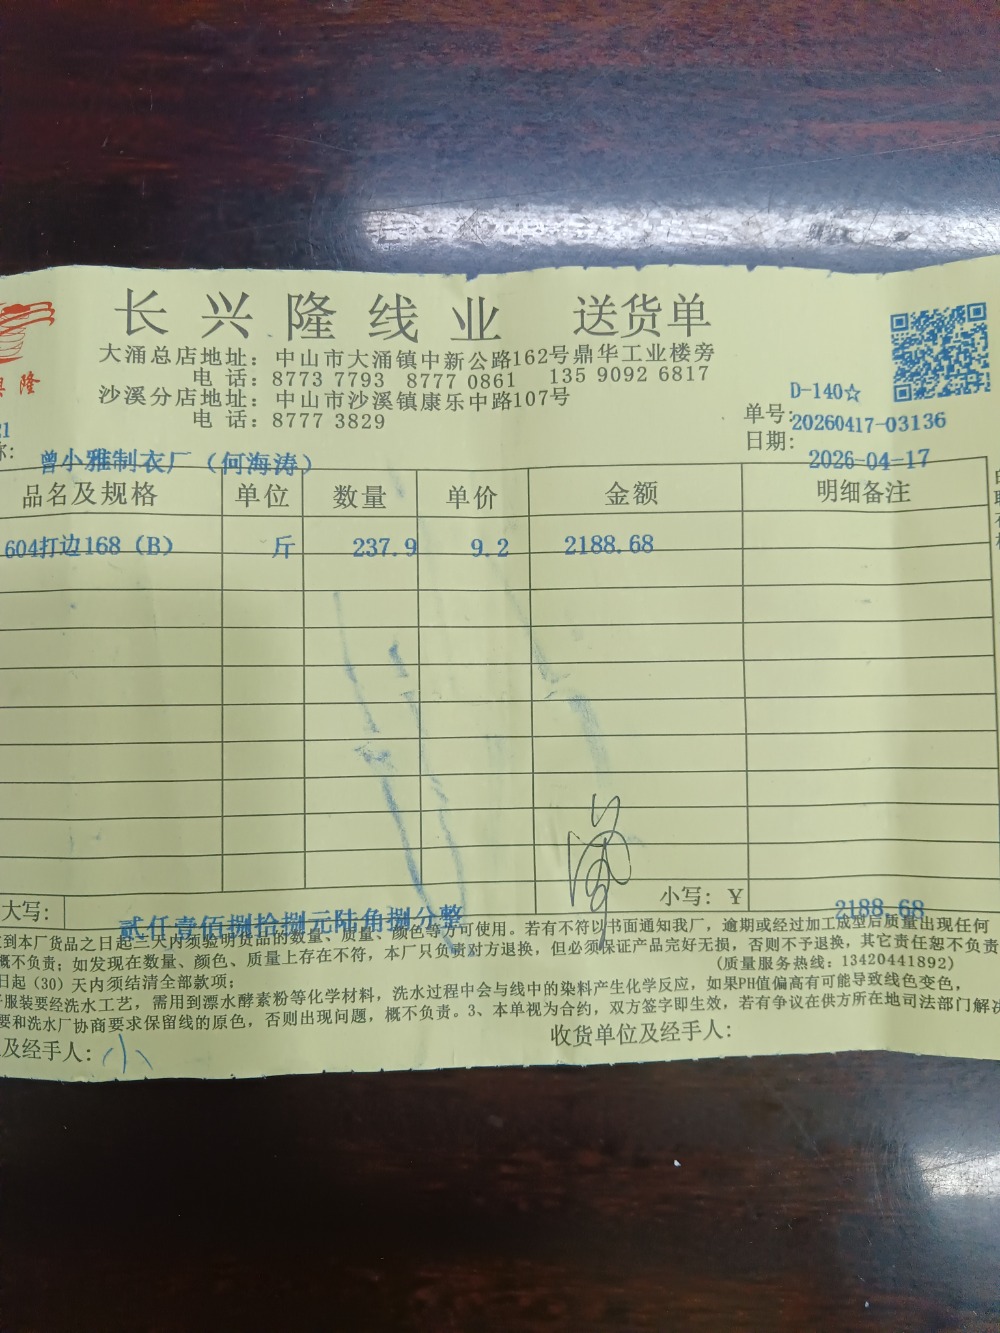 长兴隆线业 送货单
大涌总店地址：中山市大涌镇中新公路162号鼎华工业楼旁
电 话：8773 7793 8777 0861 135 9092 6817
沙溪分店地址：中山市沙溪镇康乐中路107号
电 话：8777 3829
隆
D-140☆
单号：20260417-03136
日期：2026-04-17
21
称：曾小雅制衣厂（何海涛）
品名及规格 单位 数量 单价 金额 明细备注
604打边168（B） 斤 237.9 9.2 2188.68
大写：贰仟壹佰捌拾捌元陆角捌分整 小写：￥2188.68
到本厂货品之日起三天内须验明货品的数量、质量、颜色等方可使用。若有不符以书面通知我厂，逾期或经过加工成型后质量出现任何
概不负责；如发现在数量、颜色、质量上存在不符，本厂只负责对方退换，但必须保证产品完好无损，否则不予退换，其它责任恕不负责
（质量服务热线：13420441892）
日起（30）天内须结清全部款项；
服装要经洗水工艺，需用到漂水酵素粉等化学材料，洗水过程中会与线中的染料产生化学反应，如果PH值偏高有可能导致线色变色，
要和洗水厂协商要求保留线的原色，否则出现问题，概不负责。3、本单视为合约，双方签字即生效，若有争议在供方所在地司法部门解决
及经手人： 收货单位及经手人：